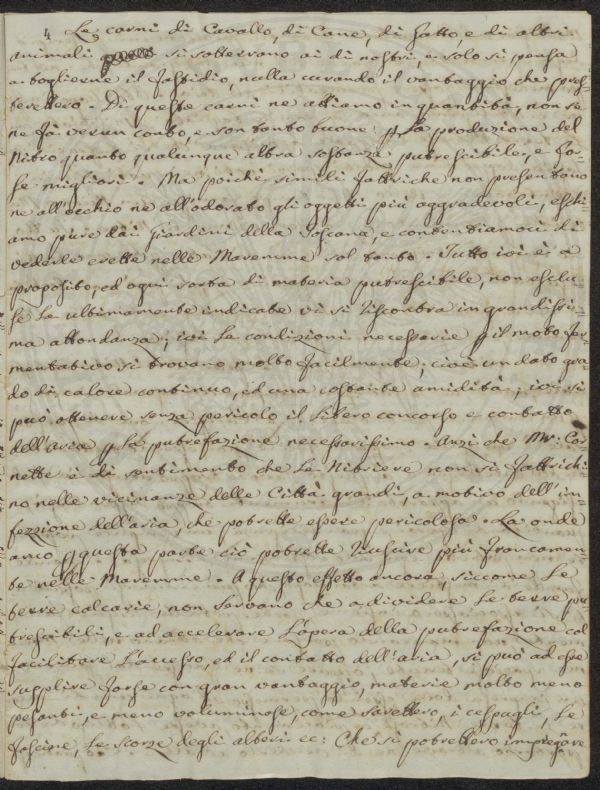 4 Le carni di Cavallo, di Cane, di Gatto, e di altri
animali si sotterrano ai dì nostri, e solo si pensa
a toglierne il fastidio, nulla curando il vantaggio che pres-
terebbero. Di queste carni ne abbiamo in quantità, non se
ne fà verun conto, e son tanto buone p la produzione del
Nitro quanto qualunque altra sostanza putrescibile, e for-
se migliori. Ma poichè simili fabbriche non presentano
ne all'occhio ne all'odorato gli oggetti più aggradevoli, esch-
amo pure dai Giardini della Toscana, e contentiamoci di
vederle erette nelle Maremme sol tanto. Tutto ivi è a
proposito, ed ogni sorta di materia putrescibile, non esclu-
se le ultimamente indicate vi si riscontra in grandissi-
ma abbondanza; ivi le condizioni necessarie p il moto fer-
mentativo si trovano molto facilmente, cioè un dato gra-
do di calore continuo, ed una costante umidità; ivi si
può ottenere senza pericolo il libero concorso e contatto
dell'aria p la putrefazione necessarissimo. Anzi che Mr: Cor-
nette è di sentimento che le Nitriere non si fabbrichi-
no nelle vicinanze delle Città grandi, a motivo dell'in-
fezzione dell'aria, che potrebbe essere pericolosa. La onde
anco p questa parte ciò potrebbe riuscire più francamen-
te nelle Maremme. A questo effetto ancora, siccome le
terre calcarie, non servono che a dividere le terre pu-
trescibili, e ad accelerare l'opera della putrefazione col
facilitare l'accesso, ed il contatto dell'aria, si può ad esse
supplire forse con gran vantaggio, materie molto meno
pesanti, e meno voluminose, come sarebbero, i cespugli, le
fascine, le scorze degli alberi ec: Che si potrebbero impregare